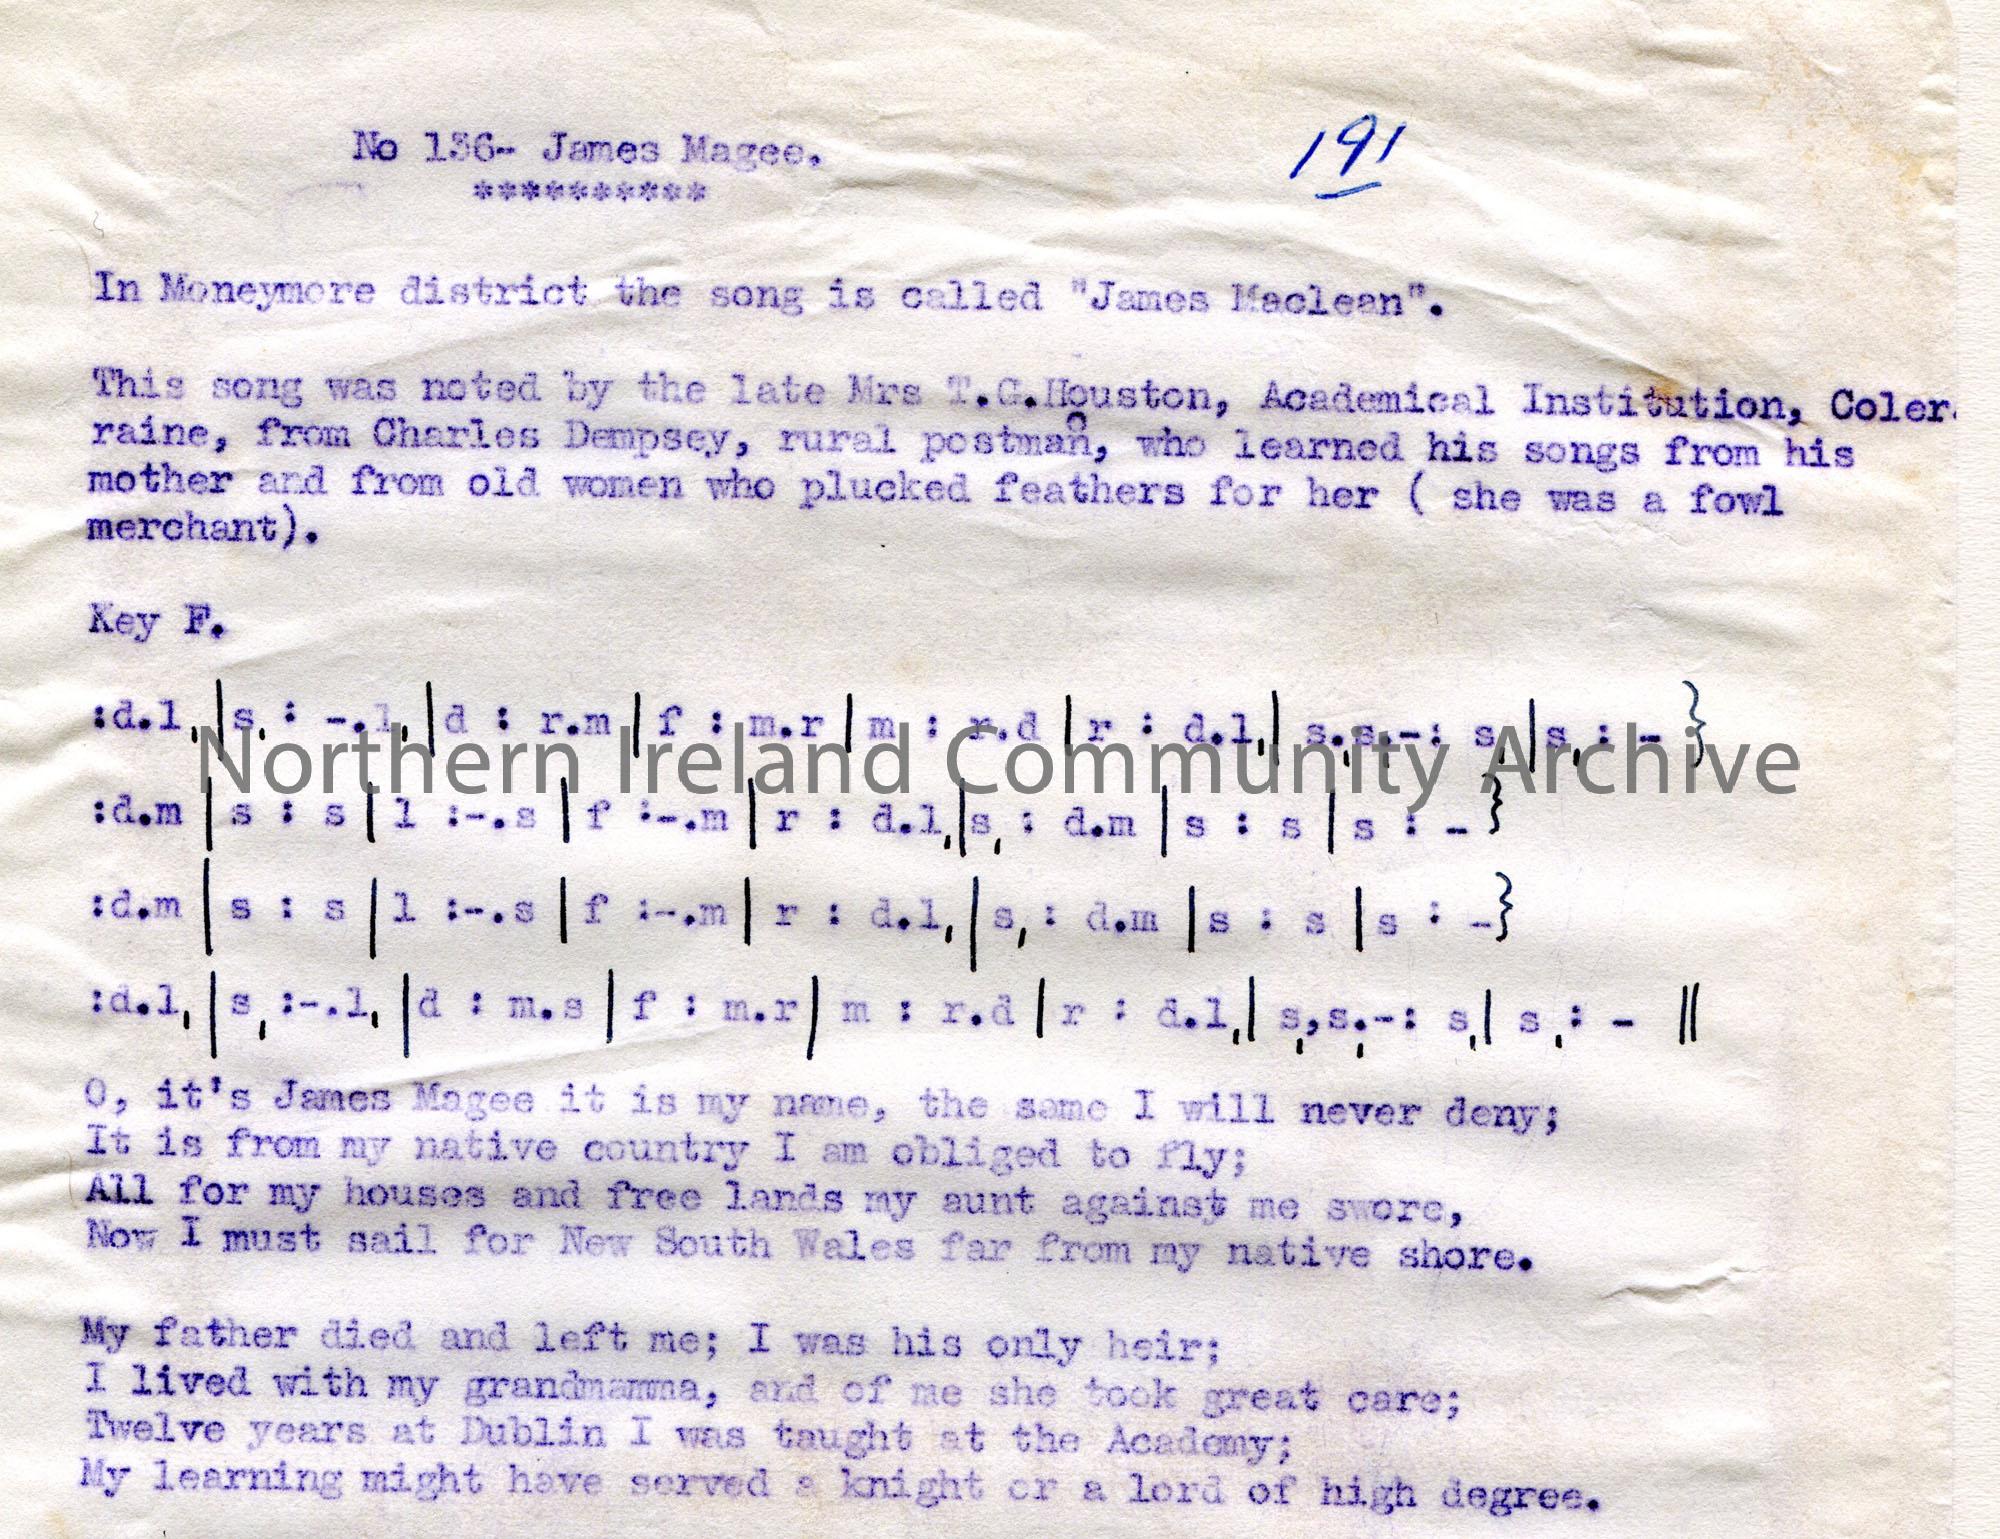 No 136- James Magee.
191
**********
In Moneymore district the song is called "James Maclean".
This song was noted by the late Mrs T.G.Houston, Academical Institution, Coler
raine, from Charles Dempsey, rural postman, who learned his songs from his
mother and from old women who plucked feathers for her ( she was a fowl
merchant).
Key F.
:d.l,|s, : -.l,|d : r.m|f : m.r|m : r.d|r : d.l,|s,.s,.-: s,|s, : -}
Northern Ireland Community Archive
:d.m|s : s|l :-.s|f :-.m|r : d.l,|s, : d.m|s : s|s : -}
:d.m|s : s|l :-.s|f :-.m|r : d.l,|s, : d.m|s : s|s : -}
:d.l,|s, :-.l,|d : m.s|f : m.r|m : r.d|r : d.l,|s,,s,.-: s,|s, : - ||
O, it's James Magee it is my name, the same I will never deny;
It is from my native country I am obliged to fly;
All for my houses and free lands my aunt against me swore,
Now I must sail for New South Wales far from my native shore.
My father died and left me; I was his only heir;
I lived with my grandmamma, and of me she took great care;
Twelve years at Dublin I was taught at the Academy;
My learning might have served a knight or a lord of high degree.